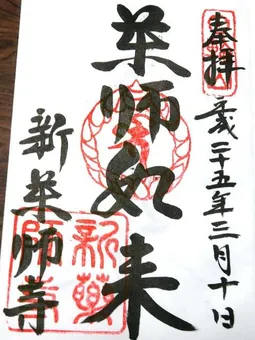 奉拝
平成二十五年三月十日
薬師如来
新薬師寺
新薬
師寺